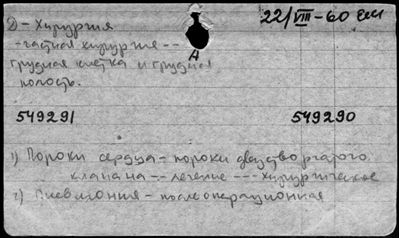 2) - Хирургия 22/VIII-60 ем
- частная хирургия --
грудная клетка и грудная А
полость.
549291 549290
1) Пороки сердца - пороки двустворчатого
клапана -- лечение --- хирургическое
2) Пневмония - послеоперационная